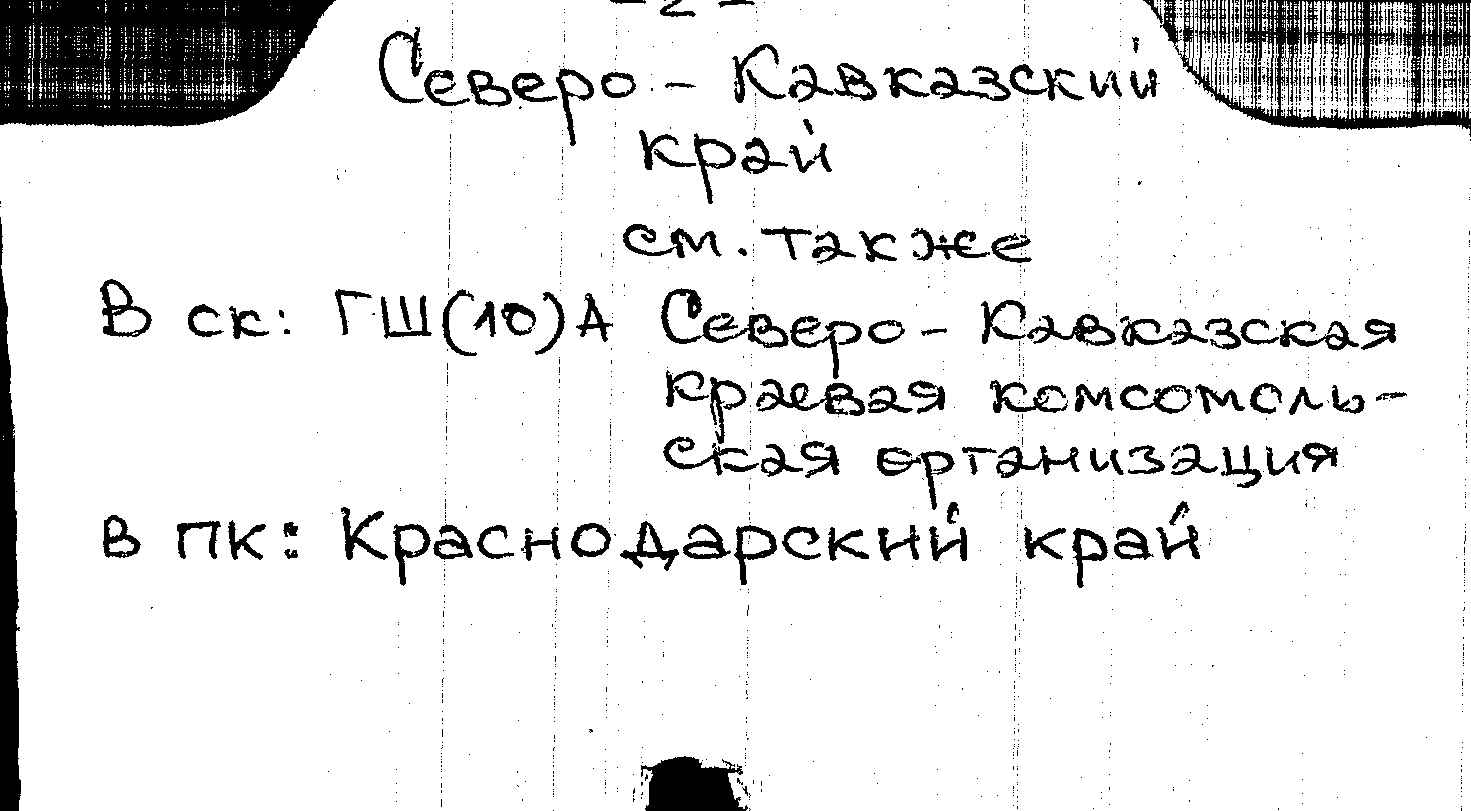 - 2 -
Северо - Кавказский
край
см. также
В ск: ГШ(10)А Северо - Кавказская
краевая комсомоль-
ская организация
в пк: Краснодарский край